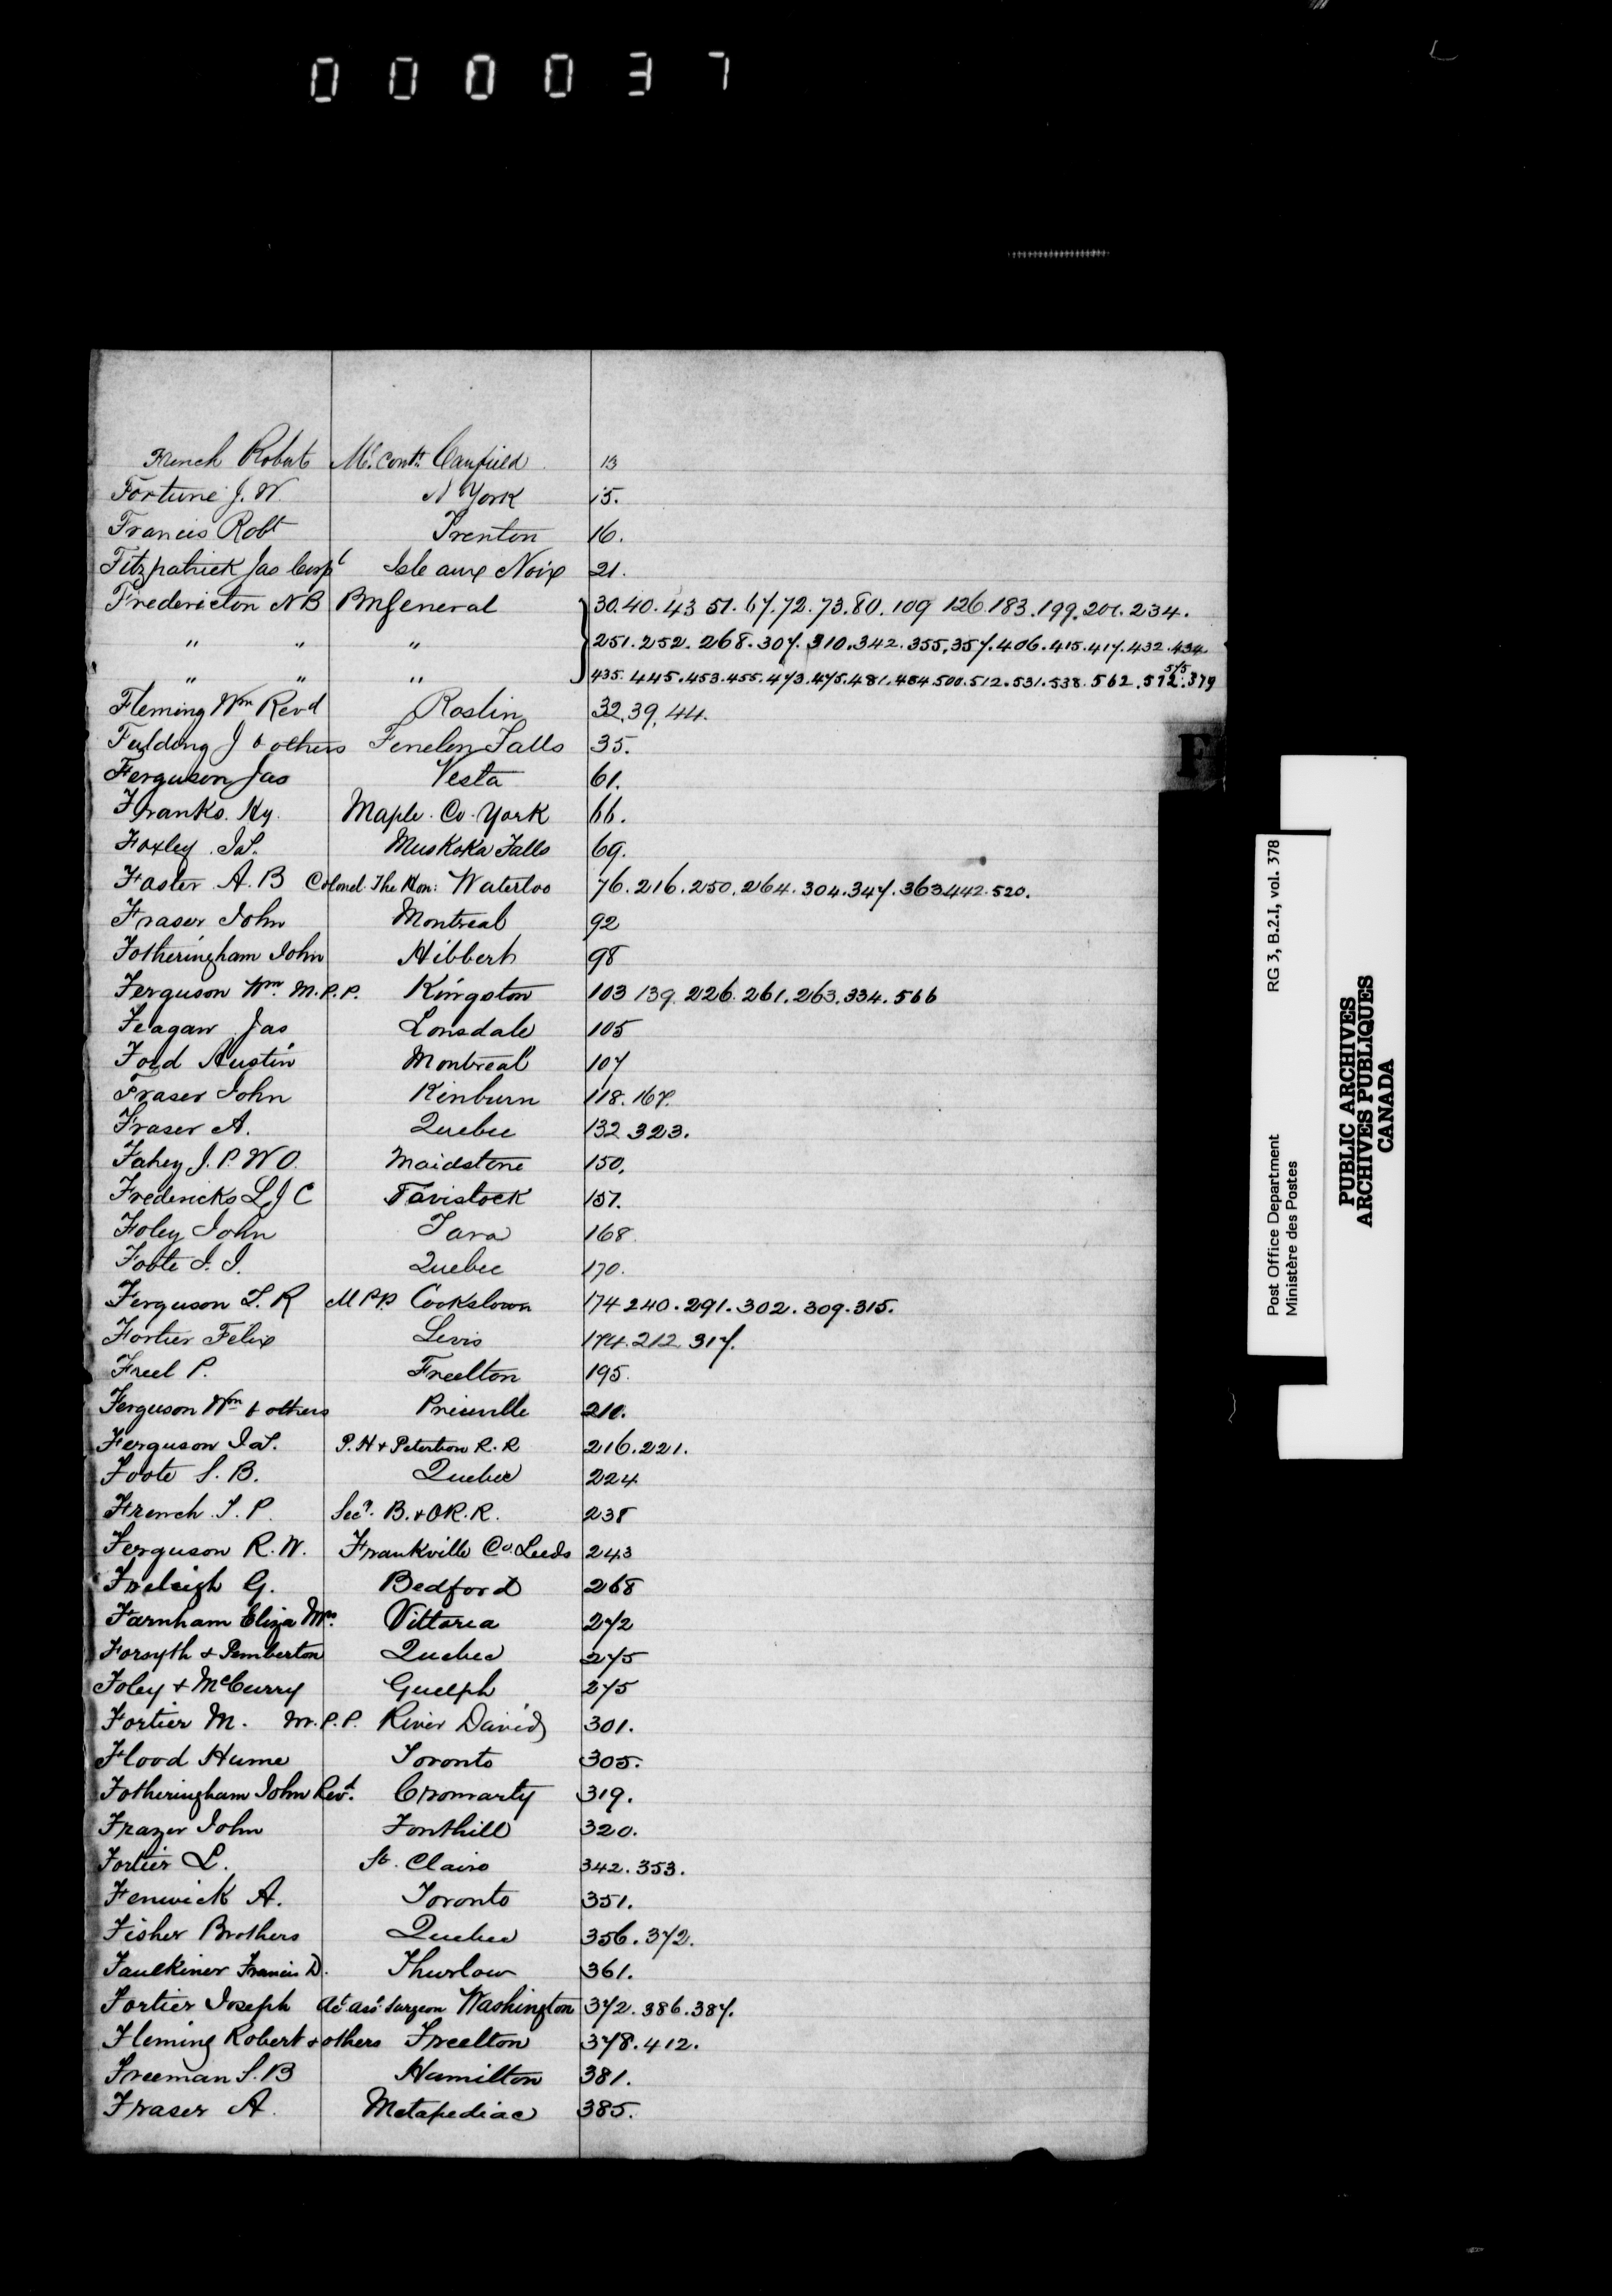 000037
French Robert Ml. Contr. Canfield 13
Fortune J. W. N York 15.
Francis Robt Trenton 16.
Fitzpatrick Jas Corpl Isle aux Noix 21.
Fredericton NB PM General 30.40.43 51.67.72.73.80.109 126.183.199.201.234.
" " " 251.252.268.307.310.342.355.357.406.415.417.432.434
575
" " " 435.445.453.455.473.475.481.484.500.512.531.538.562.572.379
Fleming Wm Revd Roslin 32.39.44.
Feilding J & others Fenelon Falls 35.
Ferguson Jas Vesta 61.
Franks Hy. Maple Co. York 66.
Foxley Jas. Muskoka Falls 69.
Foster A. B Colonel The Hon: Waterloo 76.216.250.264.304.347.363.442.520.
Fraser John Montreal 92
Fotheringham John Hibbert 98
Ferguson Wm. M.P.P. Kingston 103 139 226.261.263.334.566
Feagan Jas Lonsdale 105
Ford Austin Montreal 107
Fraser John Kinburn 118.167.
Fraser A. Quebec 132 323.
Fahey J. P. W O. Maidstone 150.
Fredericks L J C Tavistock 157.
Foley John Tara 168.
Foote J. J. Quebec 170.
Ferguson T. R M P.P. Cookstown 174 240.291.302.309.315.
Fortier Felix Levis 174.212 317.
Freel P. Freelton 195.
Ferguson Wm & others Priceville 210.
Ferguson Jas. P. H & Peterboro R. R 216.221.
Foote S. B. Quebec 224
French T. P. Secy. B. & O R. R. 238
Ferguson R. W. Frankville Co. Leeds 243
Freleigh G. Bedford 268
Farnham Eliza Mrs. Vittoria 272
Forsyth & Pemberton Quebec 275
Foley & McCurry Guelph 275
Fortier M. M.P.P. River David 301.
Flood Hume Toronto 305.
Fotheringham John Revd. Cromarty 319.
Frazer John Fonthill 320.
Fortier L. St. Claire 342.353.
Fenwick A. Toronto 351.
Fisher Brothers Quebec 356.372.
Faulkiner Francis D. Thurlow 361.
Fortier Joseph Act Asst Surgeon Washington 372.386.387.
Fleming Robert & others Freelton 378.412.
Freeman S. B Hamilton 381.
Fraser A. Metapediac 385.
F
Post Office Department RG 3, B.2.I, vol. 378
Ministère des Postes
PUBLIC ARCHIVES
ARCHIVES PUBLIQUES
CANADA